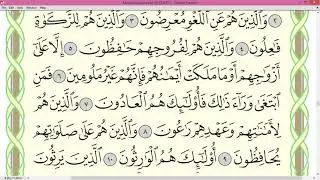 ٢ وَٱلَّذِينَ هُمْ عَنِ ٱللَّغْوِ مُعْرِضُونَ ٣ وَٱلَّذِينَ هُمْ لِلزَّكَوٰةِ
فَٰعِلُونَ ٤ وَٱلَّذِينَ هُمْ لِفُرُوجِهِمْ حَٰفِظُونَ ٥ إِلَّا عَلَىٰٓ
أَزْوَٰجِهِمْ أَوْ مَا مَلَكَتْ أَيْمَٰنُهُمْ فَإِنَّهُمْ غَيْرُ مَلُومِينَ ٦ فَمَنِ
ٱبْتَغَىٰ وَرَآءَ ذَٰلِكَ فَأُو۟لَٰٓئِكَ هُمُ ٱلْعَادُونَ ٧ وَٱلَّذِينَ هُمْ
لِأَمَٰنَٰتِهِمْ وَعَهْدِهِمْ رَٰعُونَ ٨ وَٱلَّذِينَ هُمْ عَلَىٰ صَلَوَٰتِهِمْ
يُحَافِظُونَ ٩ أُو۟لَٰٓئِكَ هُمُ ٱلْوَٰرِثُونَ ١٠ ٱلَّذِينَ يَرِثُونَ